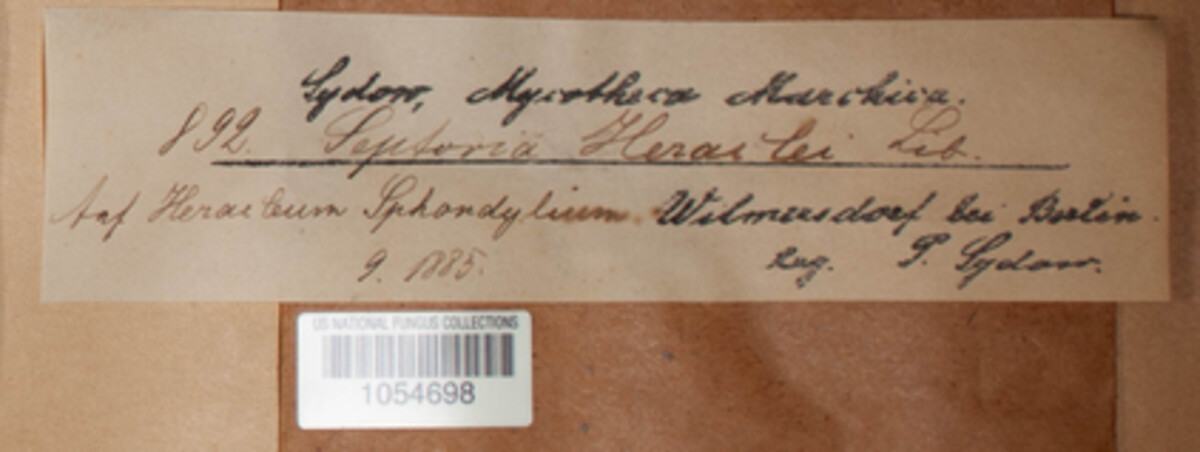 Sydow, Mycotheca Marchica.
892. Septoria Heraclei Lib.
Auf Heracleum Sphondylium Wilmersdorf bei Berlin.
9. 1885. leg. P. Sydow.
US NATIONAL FUNGUS COLLECTIONS
1054698